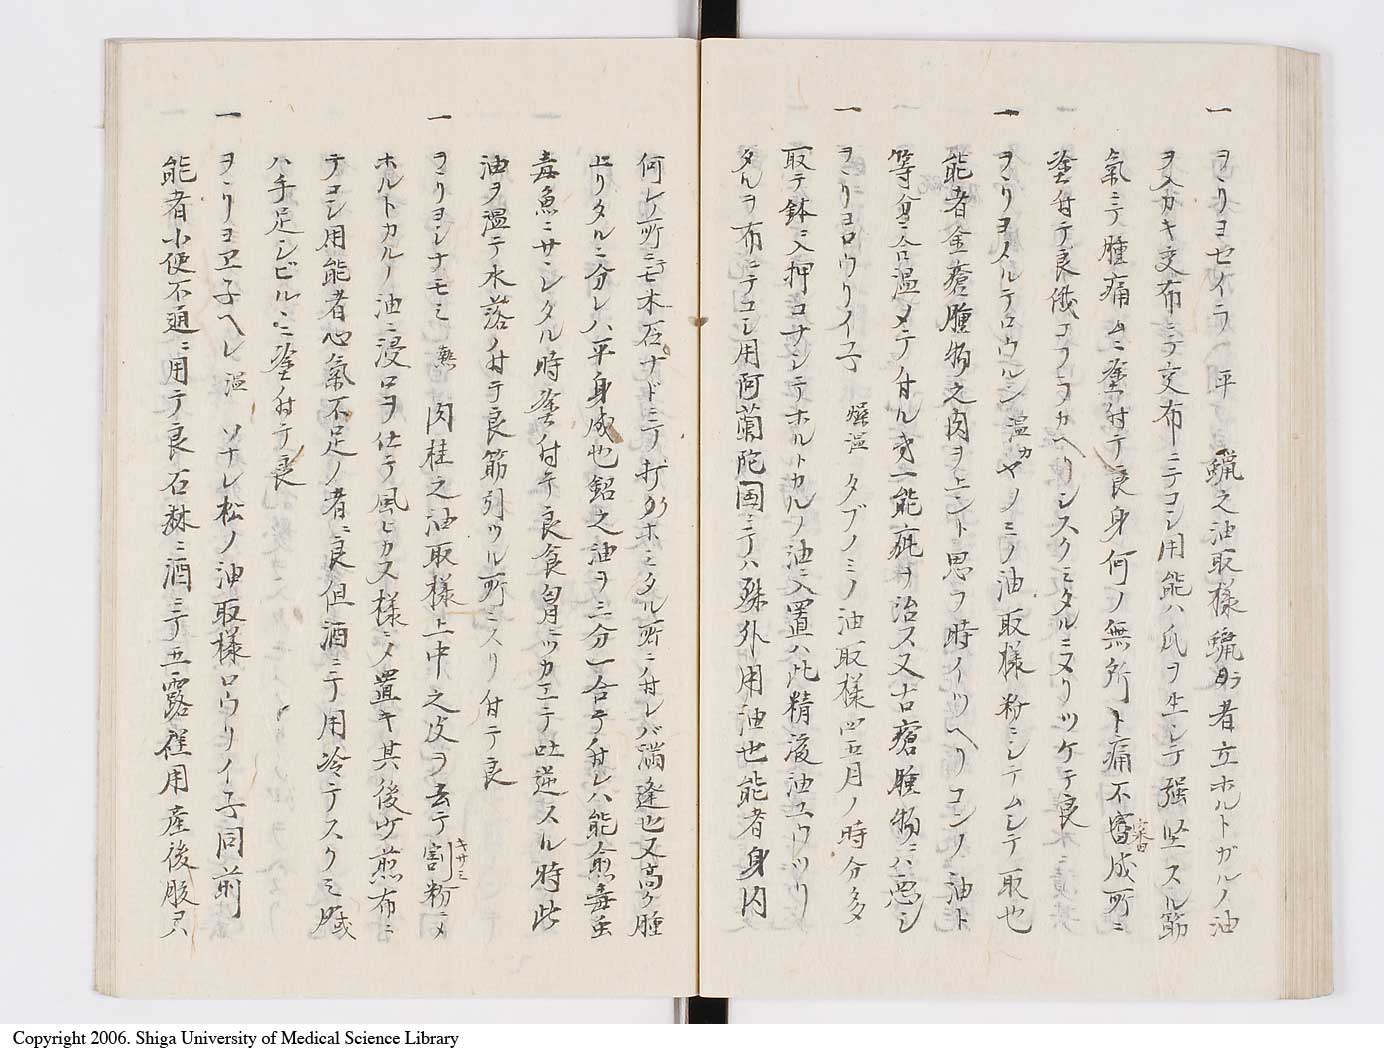 一 ヲヽリヨセイラヘ 平 蝋之油取様蝋 者立ホルトガルノ油
ヲ入カキ交布ニテ交布ニテコシ用能ハ爪ヲ生シテ強堅スル筋
氣ニテ腫痛ムニ塗付テ良身何ノ無所ト痛不 成所ニ
塗付テ良俄 フヲカヘリシスクミタルニヌリツケテ良
一 ヲヽリヨノルテロウルシ 温 カヤノミノ油取様粉ニシテムシテ取也
能者金瘡腫物之肉ヲ上ント思フ時イツヘリコンノ油ト
等分ニ合温メテ付ル第一能 ヲ治ス又古瘡腫物ニハ悪シ
一 ヲヽリヨロウリイ子 燥温 タブノミノ油取様四五月ノ時分多
取テ鉢ニ入押コナシテホルトカルノ油ニ入置ハ此精 油ニウツリ
タルヲ布ニテコシ用阿蘭陀国ニテハ殊外用油也能者身内
何レノ所ニテモ木石ナドニテ打 ホミタル所ニ付レバ満逢也又高ク腫
上リタルニ分レハ平身成也 之油ヲ三分一合テ付レハ能愈毒虫
毒魚ニサヽレタル時塗付テ良食胃ニツカエテ吐逆スル時此
油ヲ温テ水落ノ付テ良筋引ツル所ニスリ付テ良
一 ヲヽリヨシナモミ 熱 肉桂之油取様上中之皮ヲ去テ割キサミ粉ニメ
ホルトカルノ油ニ浸口ヲ仕テ風ヒカヌ様ニメ置キ其後少煎布ニ
テコシ用能者心氣不足ノ者ニ良但酒ニテ用冷テスクミ或
ハ手足シビルヽニ塗付テ良
一 ヲヽリヨヱ子ヘレ 温 ソナレ松ノ油取様ロウリイ子同前
能者小便不通ニ用テ良石淋ニ酒ニテ五露 用産後腹又ハ
Copyright 2006. Shiga University of Medical Science Library